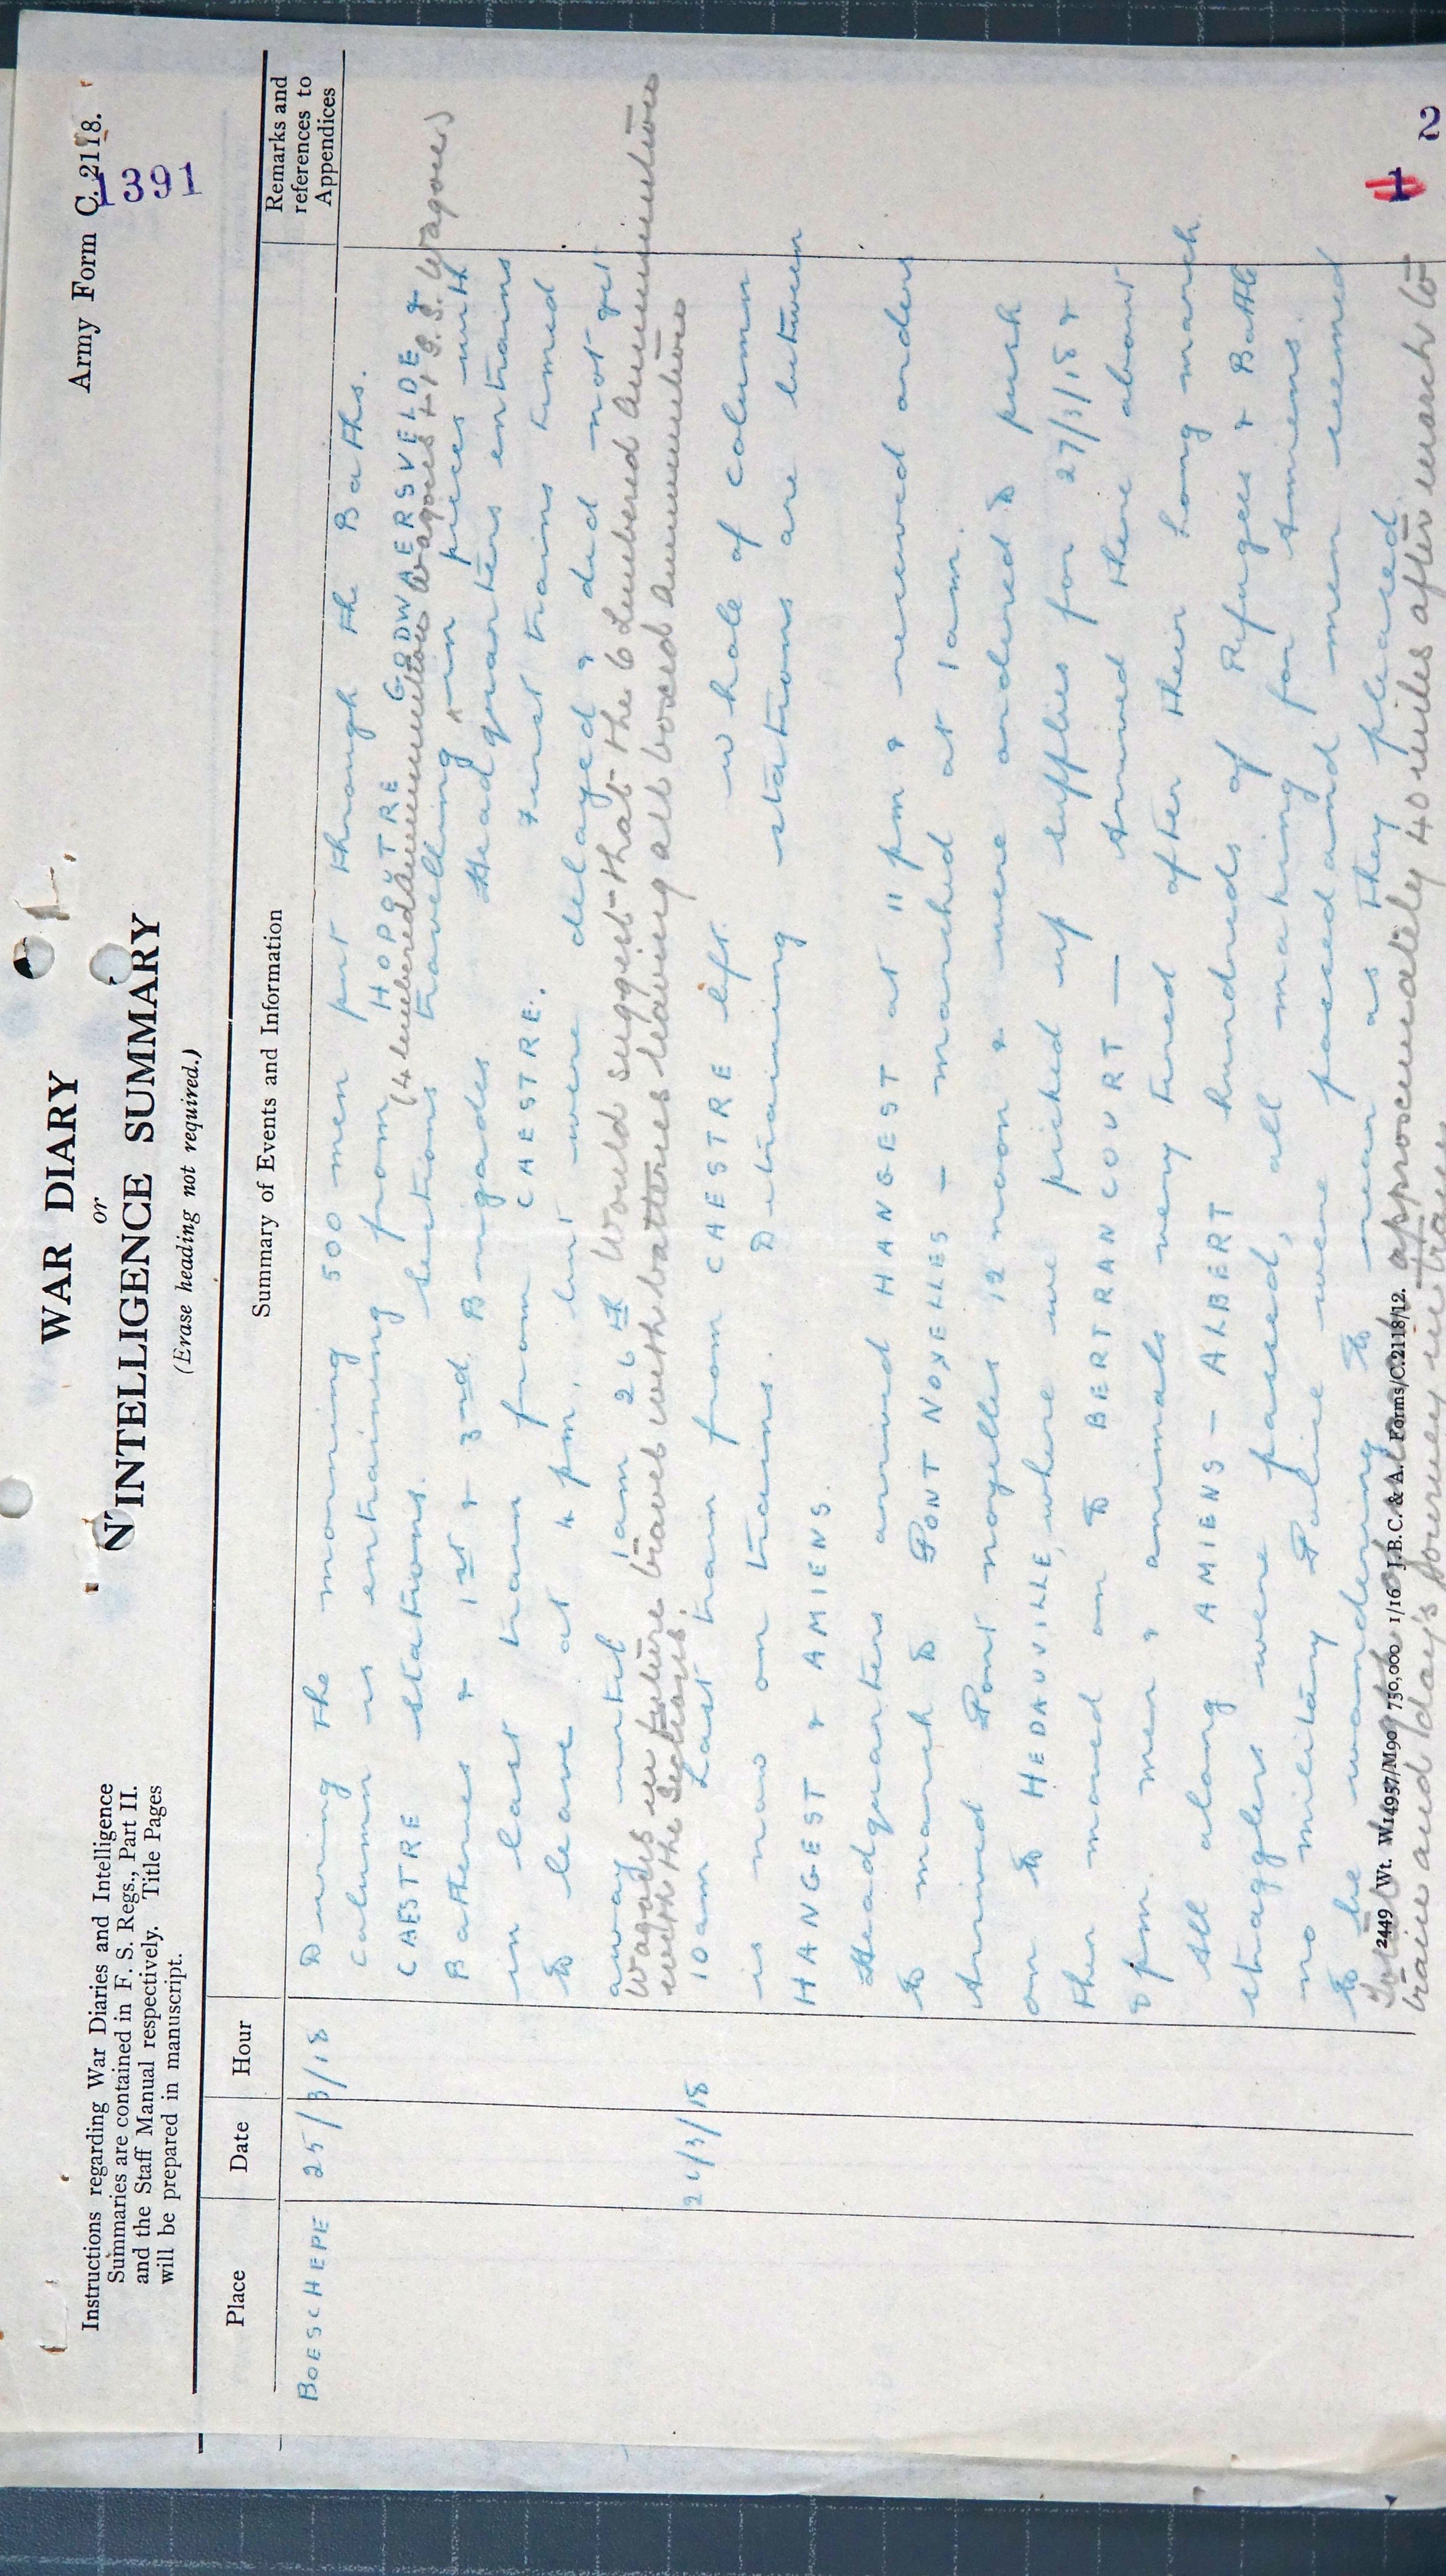 Army Form C. 2118.
1391
WAR DIARY
or
INTELLIGENCE SUMMARY
(Erase heading not required.)
Instructions regarding War Diaries and Intelligence
Summaries are contained in F. S. Regs., Part II.
and the Staff Manual respectively. Title Pages
will be prepared in manuscript.
Place
Date
Hour
Summary of Events and Information
Remarks and
references to
Appendices
BOESCHEPE 25/3/18 During the morning 500 men put through the Baths.
Column is entraining from HOPOUTRE GODWAERSVELDE &
CAESTRE stations. Sections travelling in pieces with
(4 limbered Ammunition Wagons + 1 G.S. Wagon)
Batteries & 1st & 3rd Brigades. Headquarters entrains
in last train from CAESTRE. First trains timed
to leave at 4 pm, but were delayed & did not get
away until 1am 26th Would suggest that the 6 Limbered Ammunition
Wagons in future travel with batteries leaving all boxed ammunition
with the Sections.
26/3/18 10am Last train from CAESTRE left. Whole of column
is now on trains. Detraining stations are between
HANGEST & AMIENS.
Headquarters arrived HANGEST at 11 pm & received orders
to march to PONT NOYELLES - marched at 1am.
Arrived Pont noyelles 12 noon & were ordered to push
on to HEDAUVILLE, where we picked up supplies for 27/3/18 &
then moved on to BERTRANCOURT — Arrived there about
8 pm. Men & animals very tired after their long march
All along AMIENS - ALBERT hundreds of Refugees & Battle
stragglers were passed, all making for Amiens.
no military Police were passed and men seemed
to be wandering to rear as they pleased.
approximately 40 miles after march to
train and 1 day's journey in train
2449 Wt. W14957/M90 750,000 1/16 J.B.C. & A. Forms/C.2118/12.
1
2